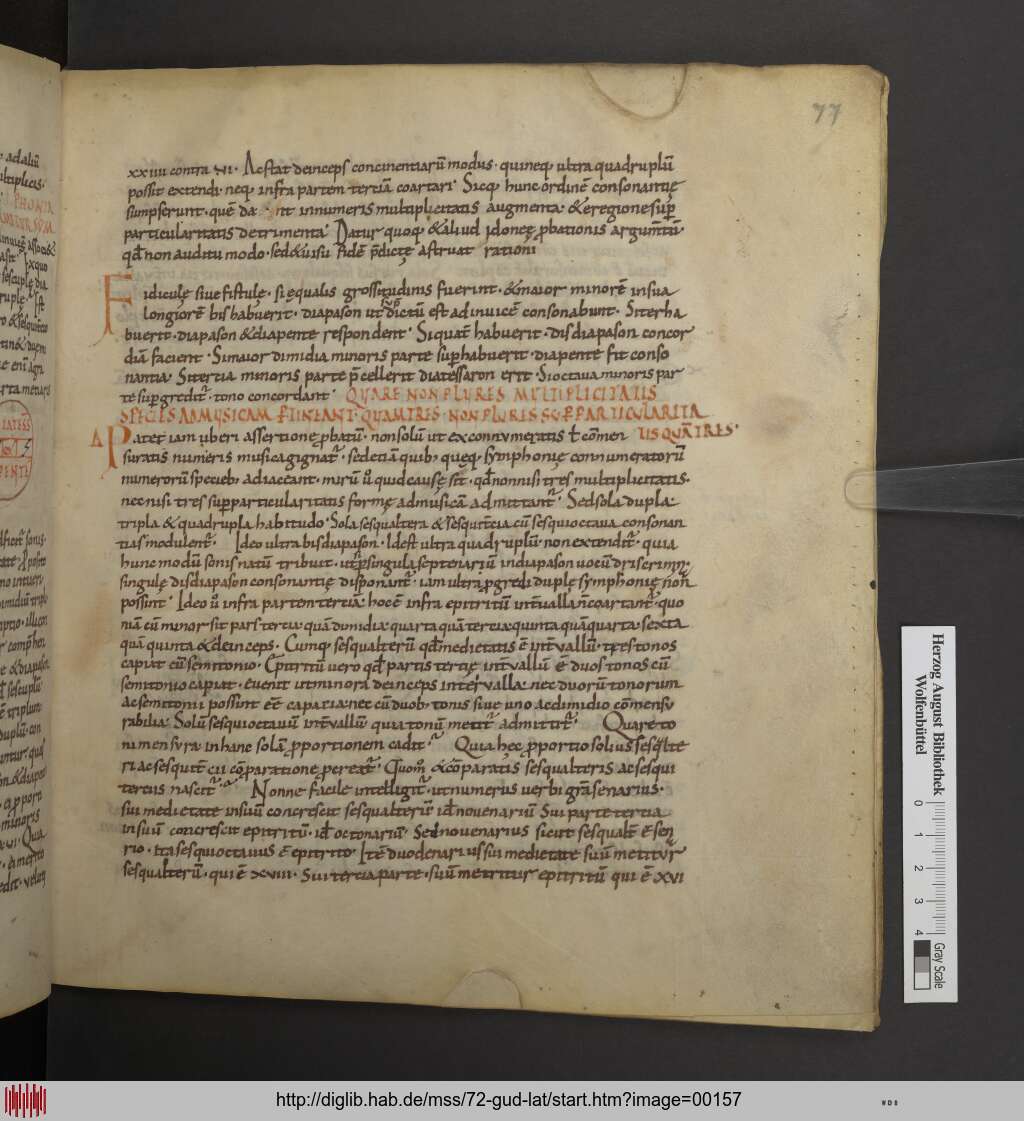 77
xxiiii contra vi. Ac stat deinceps concinentiarū modus. quineq; ultra quadruplū
possit extendi. neq; infra partem tertiā coartari. Sicq; hunc ordinē consonantię
sumpserunt. quē da nt innumeris multiplicitatis augmenta. & eregione sup
particularitatis detrimenta. Datur quoq; & aliud idoneę probationis argumtū.
qd non auditu modo. sed & uisu fidē pdictę astruat rationi
Fidiculę siue fistulę. si ęqualis grossitudinis fuerint. & maior minorē in sua
longiorē bis habuerit. diapason ut dictū est adinuicē consonabunt. Si ter ha
buerit. diapason & diapente respondent. Si quat habuerit. disdiapason concor
diā facient. Si maior dimidia minoris parte suphabuerit. diapente fit conso
nantia. Si tertia minoris parte pcellerit diatessaron erit. Si octaua minoris par
te supgredit. tono concordant. QUARE NON PLURES MULTIPLICITATIS
SPECIES AD MUSICAM PTINEANT. QUAM TRES. NON PLURES SUPPARTICULARITA
TIS QUĀ TRES.
Patet iam uberi assertione probatū. non solū ut ex connumeratis t cōmen
suratis numeris musica gignat. sed etiā quib; quęq; symphonię connumeratorū
numerorū specieb; adiaceant. mirū u quid causę sit. qd nonnisi tres multiplicitatis.
nec nisi tres supparticularitatis formę ad musicā admittant. Sed sola dupla.
tripla & quadrupla habitudo. Sola sesqualtera & sesquitcia cū sesquioctaua consonan
tias modulent. Ideo ultra bisdiapason. Idest ultra quadruplū. non extendit. quia
hunc modū sonis natū tribuit. ut p singula septenariū in diapason uocū discrimin.
singulę disdiapason consonantię disponant. iam ultra pgredi duplę symphonię non
possint. Ideo u infra partem tertiā. hoc ē infra epitritū intualla n coartant. quo
niā cū minor sit pars tertia quā dimidia. quarta quā tertia. quinta quā quarta. sexta
quā quinta & deinceps. Cumq; sesqualterū qd medietatis ē intuallū. tres tonos
capiat cū semitonio. Epitritū uero qd partis tertię intuallū ē duos tonos cū
semitonio capiat. euenit ut minora deinceps interualla nec duorū tonorum
ac semitonii possint eē capacia. nec cū duob; tonis siue uno ac dimidio cōmensu
rabilia. Solū sesquioctauū intuallū quia tonū metit admittit. Quare to
ni mensura in hanc solā pportionem cadit. Quia hęc pportio solius sesqlte
ri ac sesquitcii cōparatione pcreat. Quom & cōparatis sesqualteris ac sesqui
tertiis nascit. Nonne facile intelligit. ut numerus uerbi gra senarius.
sui medietate in suū concrescit sesqualterū id nouenariū. Sui parte tertia
in suū concrescit epitritū. id octonariū. Sed nouenarius sicut sesqualt ē sen
rio. ita sesquioctauus ē epitrito. Itē duodenarius sui medietate suū metitur
sesqualterū. qui ē xviii. Sui tertia parte. suū metitur epitritū qui ē xvi
Herzog August Bibliothek
Wolfenbüttel
0 1 2 3 4
Gray Scale
http://diglib.hab.de/mss/72-gud-lat/start.htm?image=00157